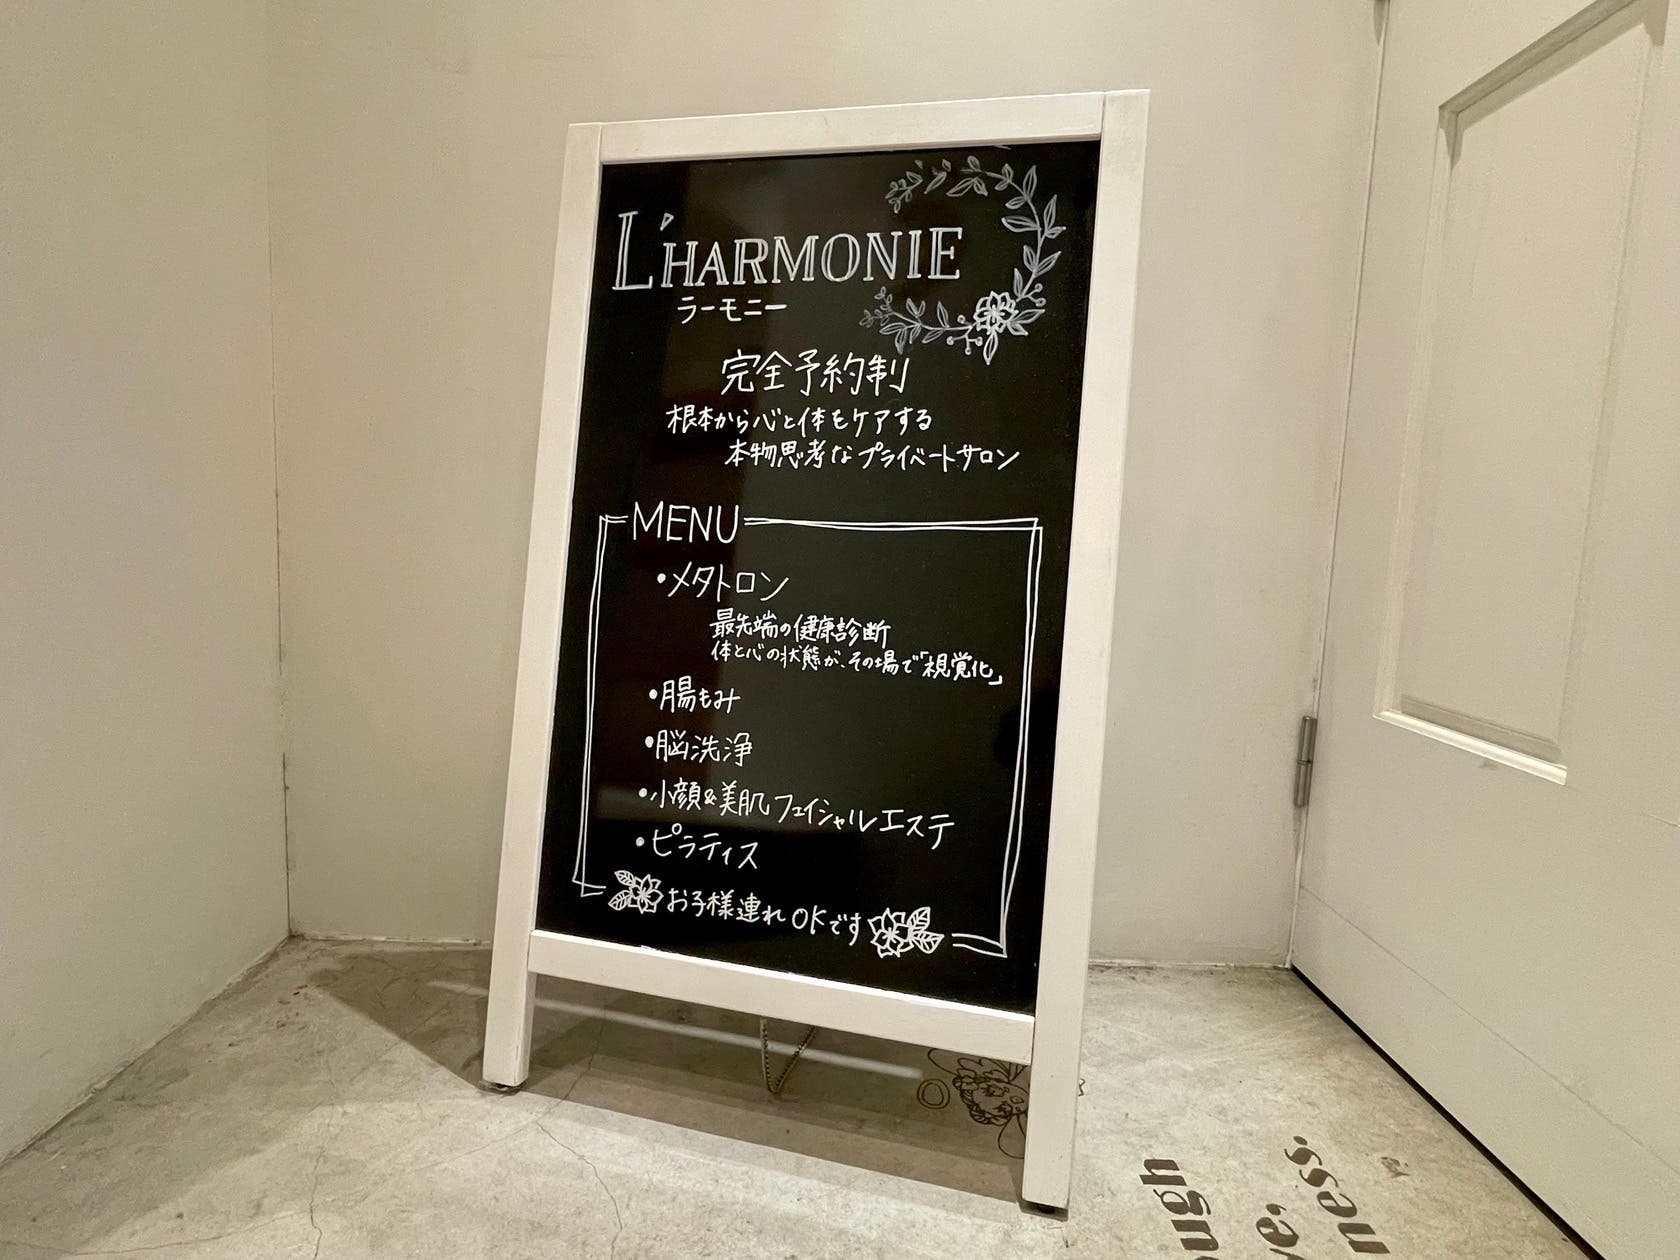 L'HARMONIE
ラーモニー
完全予約制
根本から心と体をケアする
本物思考なプライベートサロン
MENU
・メタトロン
最先端の健康診断
体と心の状態が、その場で「視覚化」
・腸もみ
・脳洗浄
・小顔&美肌フェイシャルエステ
・ピラティス
お子様連れOKです
ough
ve,
ness.